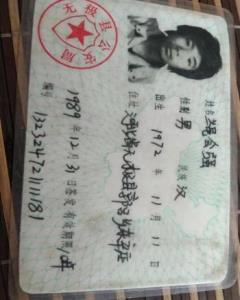 姓名 会强
性别 男 民族 汉
出生 1972 年 11 月 11 日
住址 河北省无极县
1989 年 12 月 31 日签发 有效期限 年
编号 132324721111181
无极县公安局